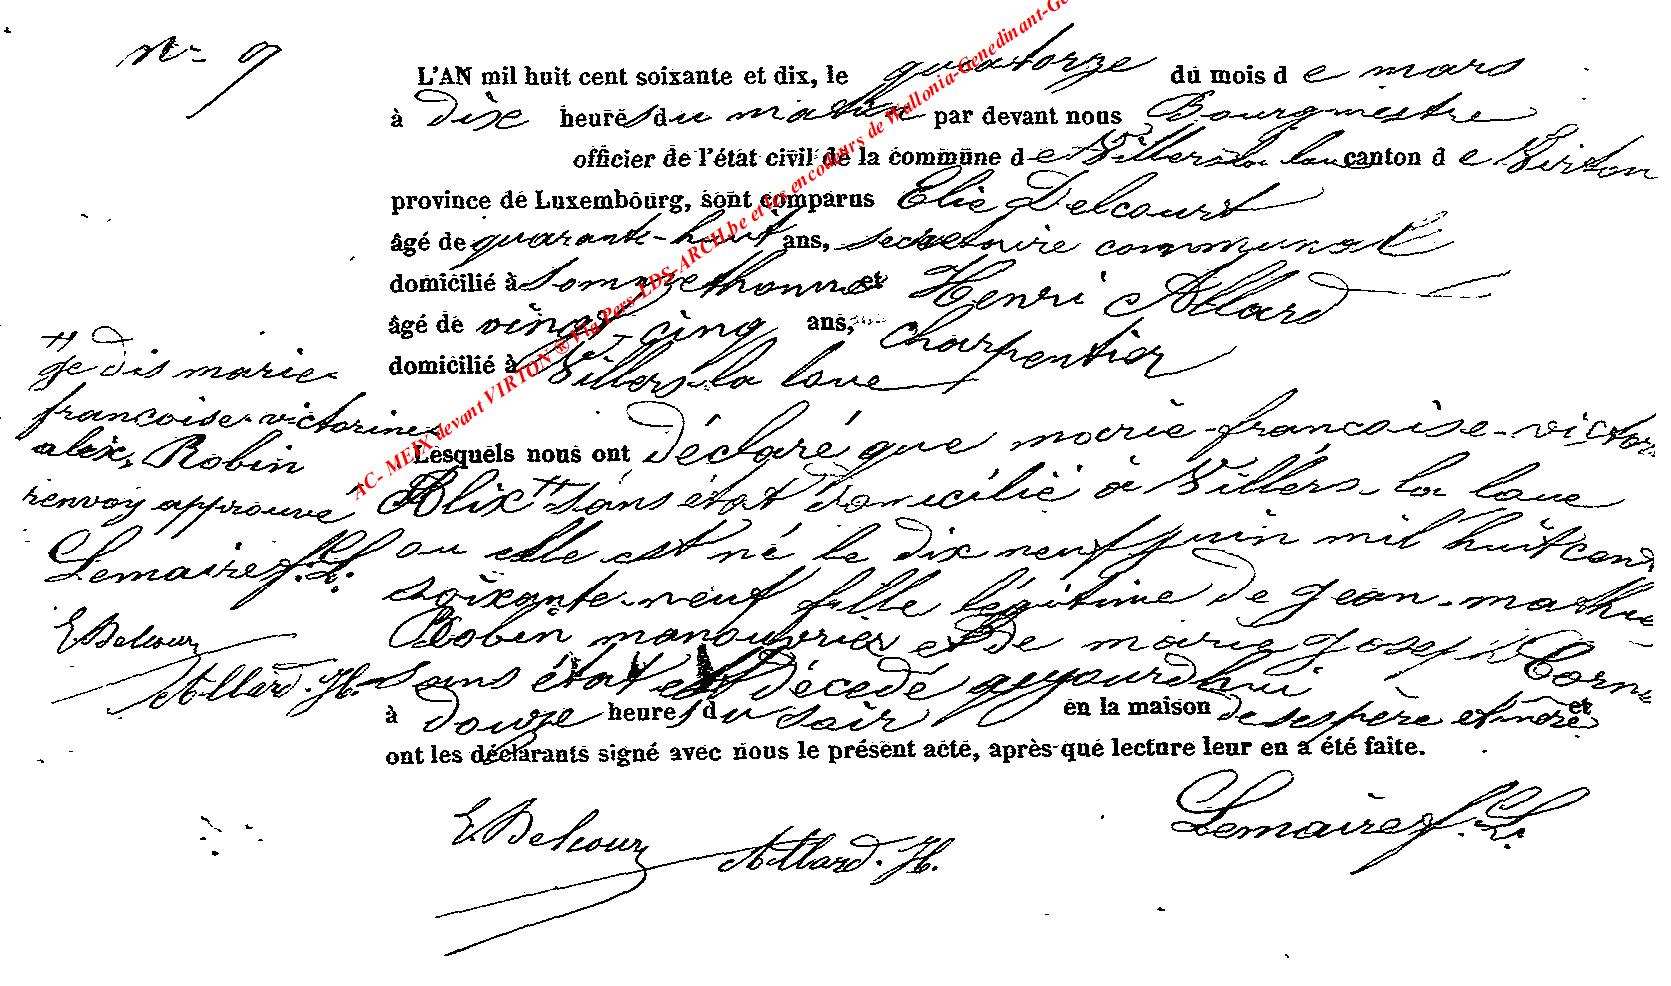 N° 9
L'AN mil huit cent soixante et dix, le quatorze du mois de mars
à dix heures du matin par devant nous Bourgmestre
officier de l'état civil de la commune de Villers la loue canton de Virton
province de Luxembourg, sont comparus Elie Delcourt
âgé de quarante-huit ans, secretaire communal
domicilié à Sommethonne et Henri Allard
âgé de vingt-cinq ans, charpentier
domicilié à Villers-la loue
Lesquels nous ont déclaré que marie-françoise-victor
Alix †† sans état domicilié à Villers-la loue
ou elle est né le dix neuf juin mil huit cent
soixante-neuf fille légitime de Jean-mathie
Robin manouvrier et de marie Joseph Corn
sans état est décedé aujourdhui
à douze heures du soir en la maison de ses père et mère et
ont les déclarants signé avec nous le présent acte, après que lecture leur en a été faite.
E Delcour Allard. H. Lemaire f. L.
†† Je dis marie-
françoise-victorine
alix, Robin
renvoy approuvé
Lemaire f. L.
E Delcour
Allard. H.
AC- MEIX devant VIRTON ® Via Pers-LDS-ARCH.be et les encodeurs de Wallonia-Genedinant-Ge